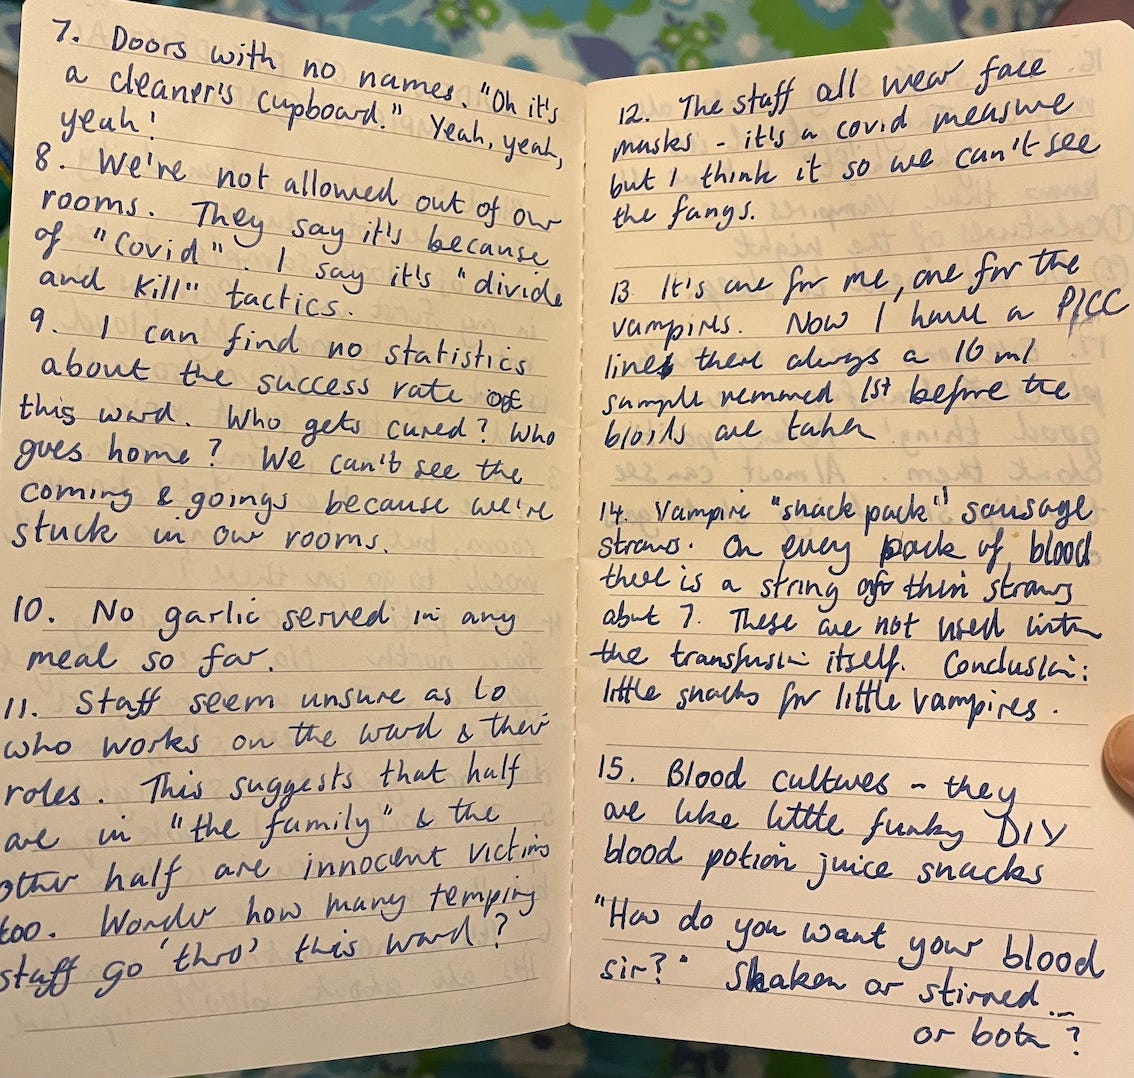 7. Doors with no names. "Oh it's
a cleaner's cupboard." Yeah, yeah,
yeah!
8. We're not allowed out of our
rooms. They say it's because
of "Covid". I say it's "divide
and kill" tactics.
9. I can find no statistics
about the success rate of
this ward. Who gets cured? Who
goes home? We can't see the
coming & goings because we're
stuck in our rooms.
10. No garlic served in any
meal so far.
11. Staff seem unsure as to
who works on the ward & their
roles. This suggests that half
are in "the family" & the
other half are innocent victims
too. Wonder how many temping
staff go 'thro' this ward?
12. The staff all wear face
masks - it's a covid measure
but I think it so we can't see
the fangs.
13. It's one for me, one for the
vampires. Now I have a PICC
line there always a 10 ml
sample removed 1st before the
bloods are taken
14. Vampire "snack pack" sausage
straws. On every pack of blood
there is a string of thin straws
about 7. These are not used with
the transfusion itself. Conclusion:
little snacks for little vampires.
15. Blood cultures - they
are like little funky DIY
blood potion juice snacks
"How do you want your blood
sir?" Shaken or stirred...
or both?